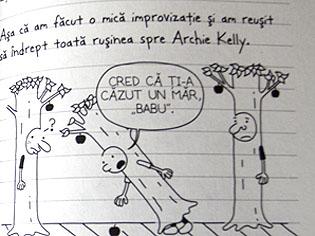 Aşa că am făcut o mică improvizaţie şi am reuşit
să îndrept toată ruşinea spre Archie Kelly.
CRED CĂ ŢI-A
CĂZUT UN MĂR,
„BABU”.
?